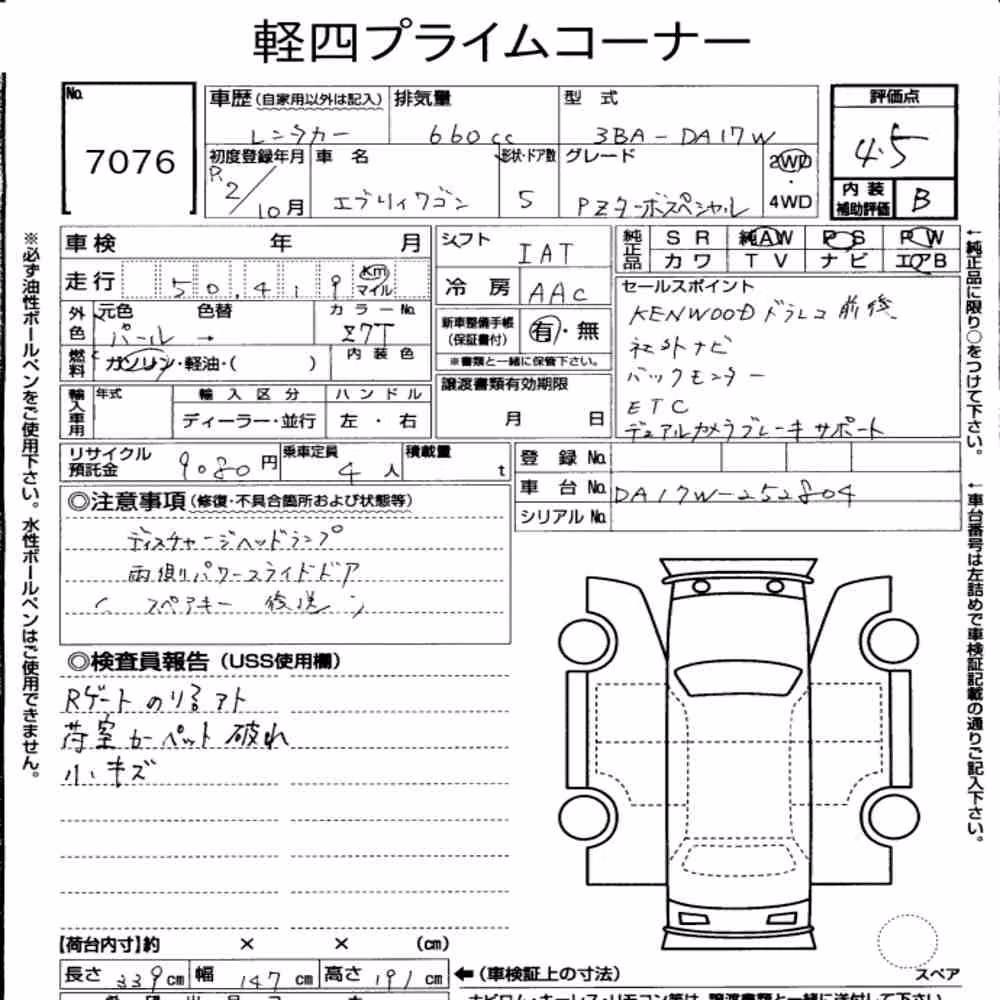 軽四プライムコーナー
No. 7076
車歴(自家用以外は記入) レンタカー
排気量 660cc
型式 3BA-DA17W
初度登録年月 R2/10月
車名 エブリィワゴン
形状・ドア数 5
グレード PZターボスペシャル
2WD・4WD
評価点 4.5
内装補助評価 B
車検 年 月
走行 50,419 km マイル
外色 元色 パール → 色替
カラーNo. Z7T
燃料 ガソリン・軽油・( )
内装色
輸入車用 年式 輸入区分 ディーラー・並行 ハンドル 左・右
シフト IAT
冷房 AAC
新車整備手帳(保証書付) 有・無
※書類と一緒に保管下さい。
譲渡書類有効期限
月 日
純正品 SR 純AW PS PW
カワ TV ナビ エアB
セールスポイント
KENWOODドラレコ前後
社外ナビ
バックモニター
ETC
デュアルカメラブレーキサポート
リサイクル預託金 9080円
乗車定員 4人
積載量 t
登録No.
車台No. DA17W-252804
シリアルNo.
◎注意事項(修復・不具合箇所および状態等)
ディスチャージヘッドランプ
両側パワースライドドア
(スペアキー 後送)
◎検査員報告(USS使用欄)
Rゲートのりるアト
荷室カーペット破れ
小キズ
【荷台内寸】約 × × (cm)
長さ 339cm 幅 147cm 高さ 191cm
←(車検証上の寸法)
スペア
※必ず油性ボールペンをご使用下さい。水性ボールペンはご使用できません。
←純正品に限り○をつけて下さい。
←車台番号は左詰めで車検証記載の通りご記入下さい。